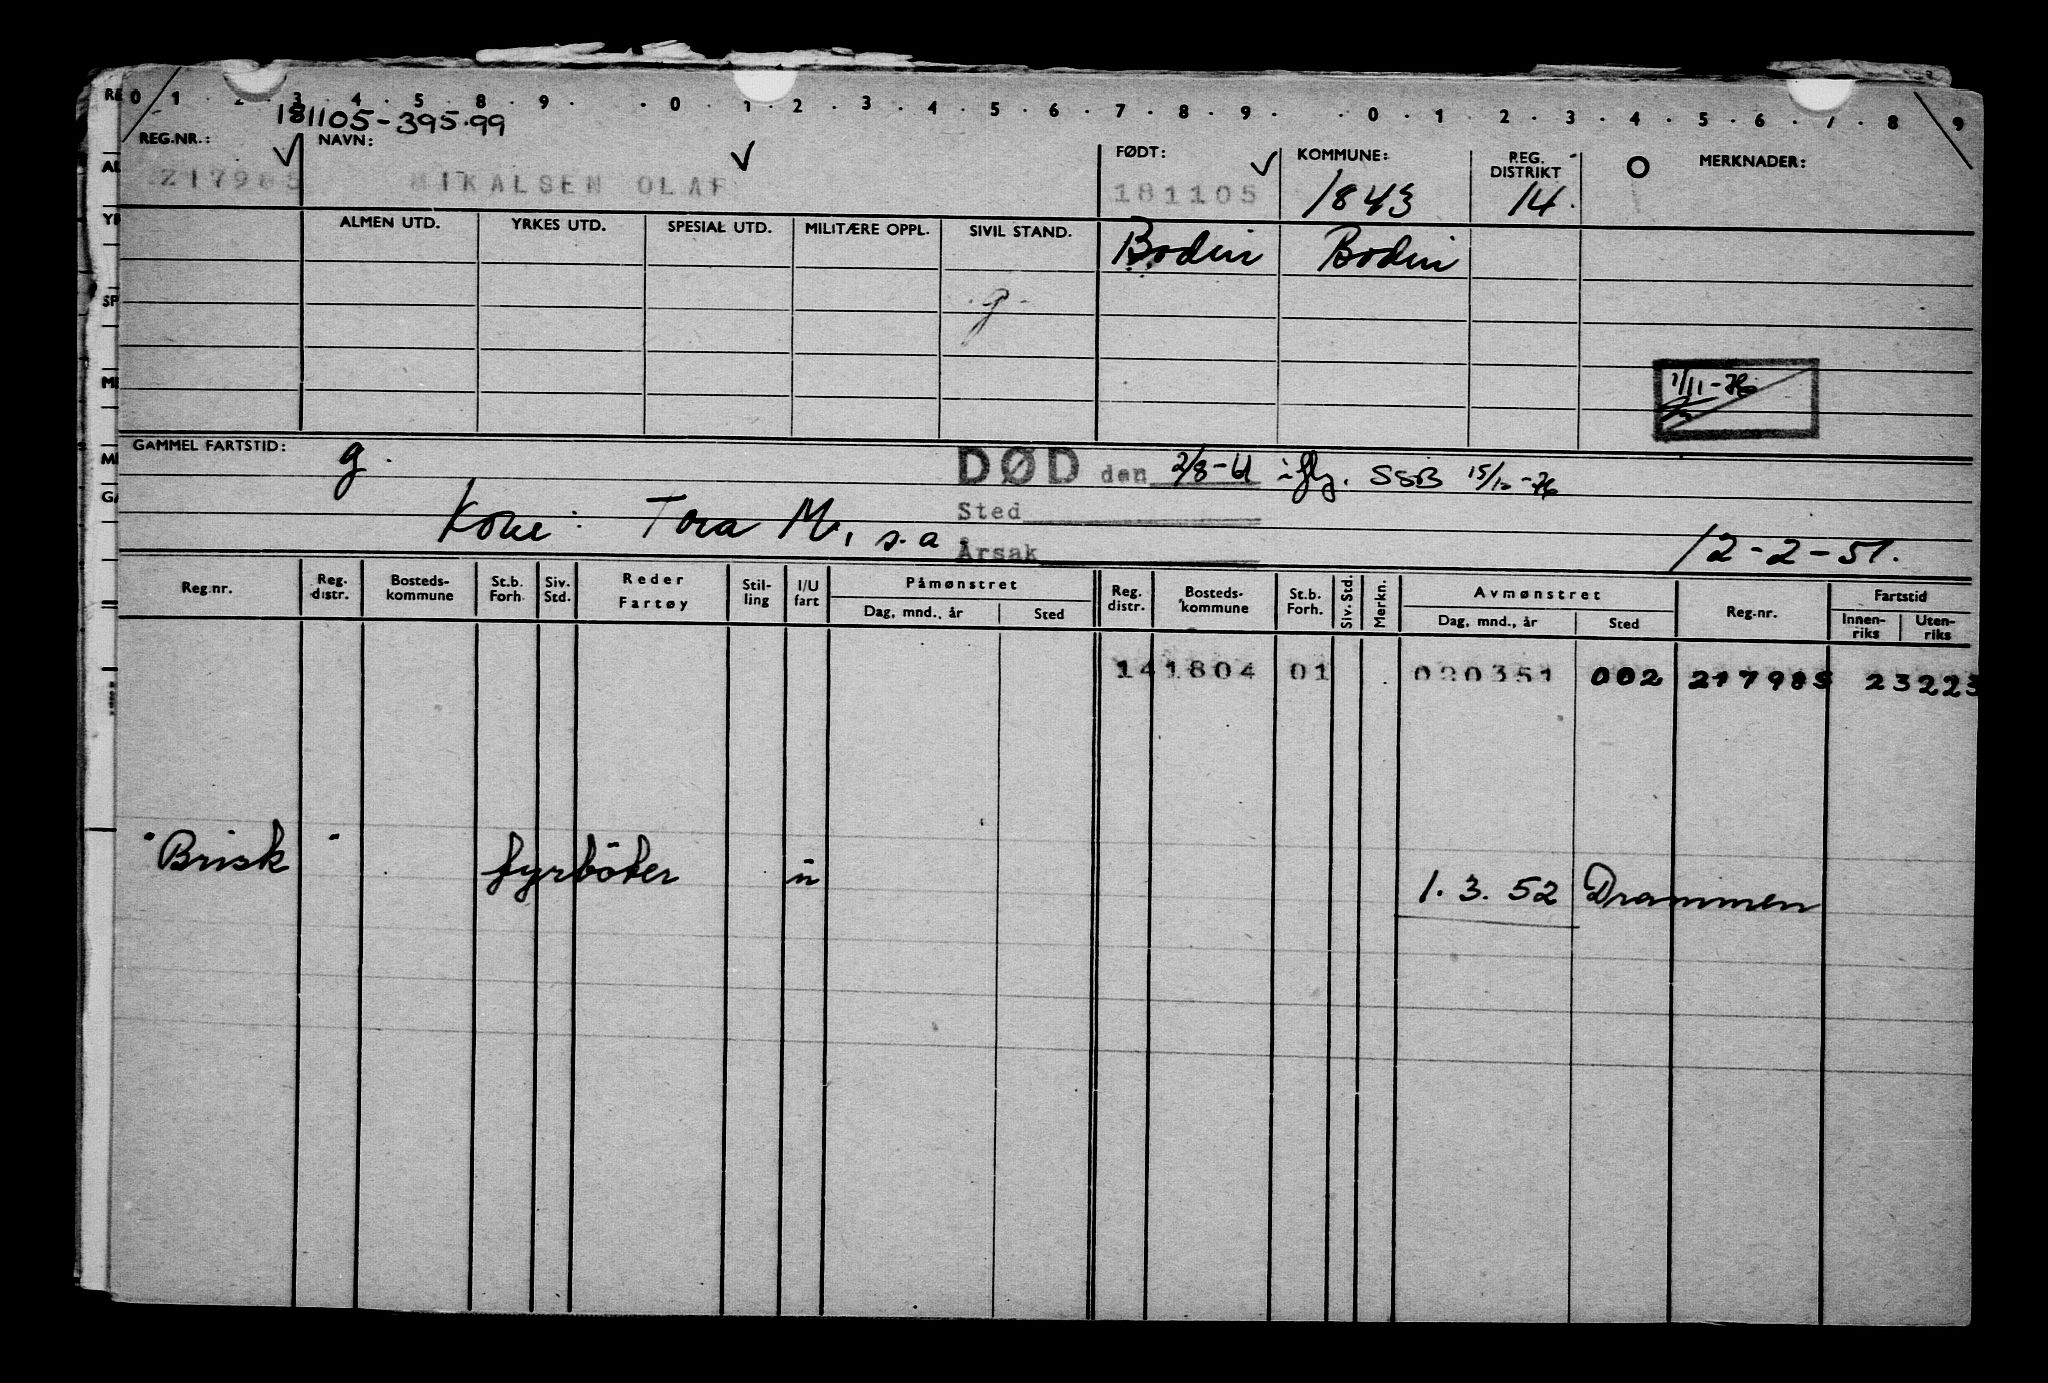 0 1 . 2 . 3 . 4 . 5 . 8 . 9 . . 0 . 1 . 2 . 3 . 4 . 5 . 6 . 7 . 8 . 9 . . 0 . 1 . 2 . 3 . 4 . 5 . 6 . 7 . 8 . 9
181105-395.99
REG.NR.: NAVN: FØDT: KOMMUNE: REG. DISTRIKT MERKNADER:
217985 MIKALSEN OLAF 181105 1843 14.
ALMEN UTD. YRKES UTD. SPESIAL UTD. MILITÆRE OPPL. SIVIL STAND. Bodin Bodin
g
1/11-76
GAMMEL FARTSTID: g. DØD den 2/8-61 iflg. SSB 15/12-76
Sted
Kone: Tora M, s.a.
Årsak 12-2-51.
Reg.nr. Reg. distr. Bosteds-kommune St.b. Forh. Siv. Std. Reder Fartøy Stil-ling I/U fart Påmønstret Reg. distr. Bosteds-kommune St.b. Forh. Siv. Std. Merkn. Avmønstret Reg.nr. Fartstid
Dag, mnd., år Sted Dag, mnd., år Sted Innen-riks Uten-riks
14 1804 01 020351 002 217985 23 223
"Brisk" fyrböter u 1.3.52 Drammen